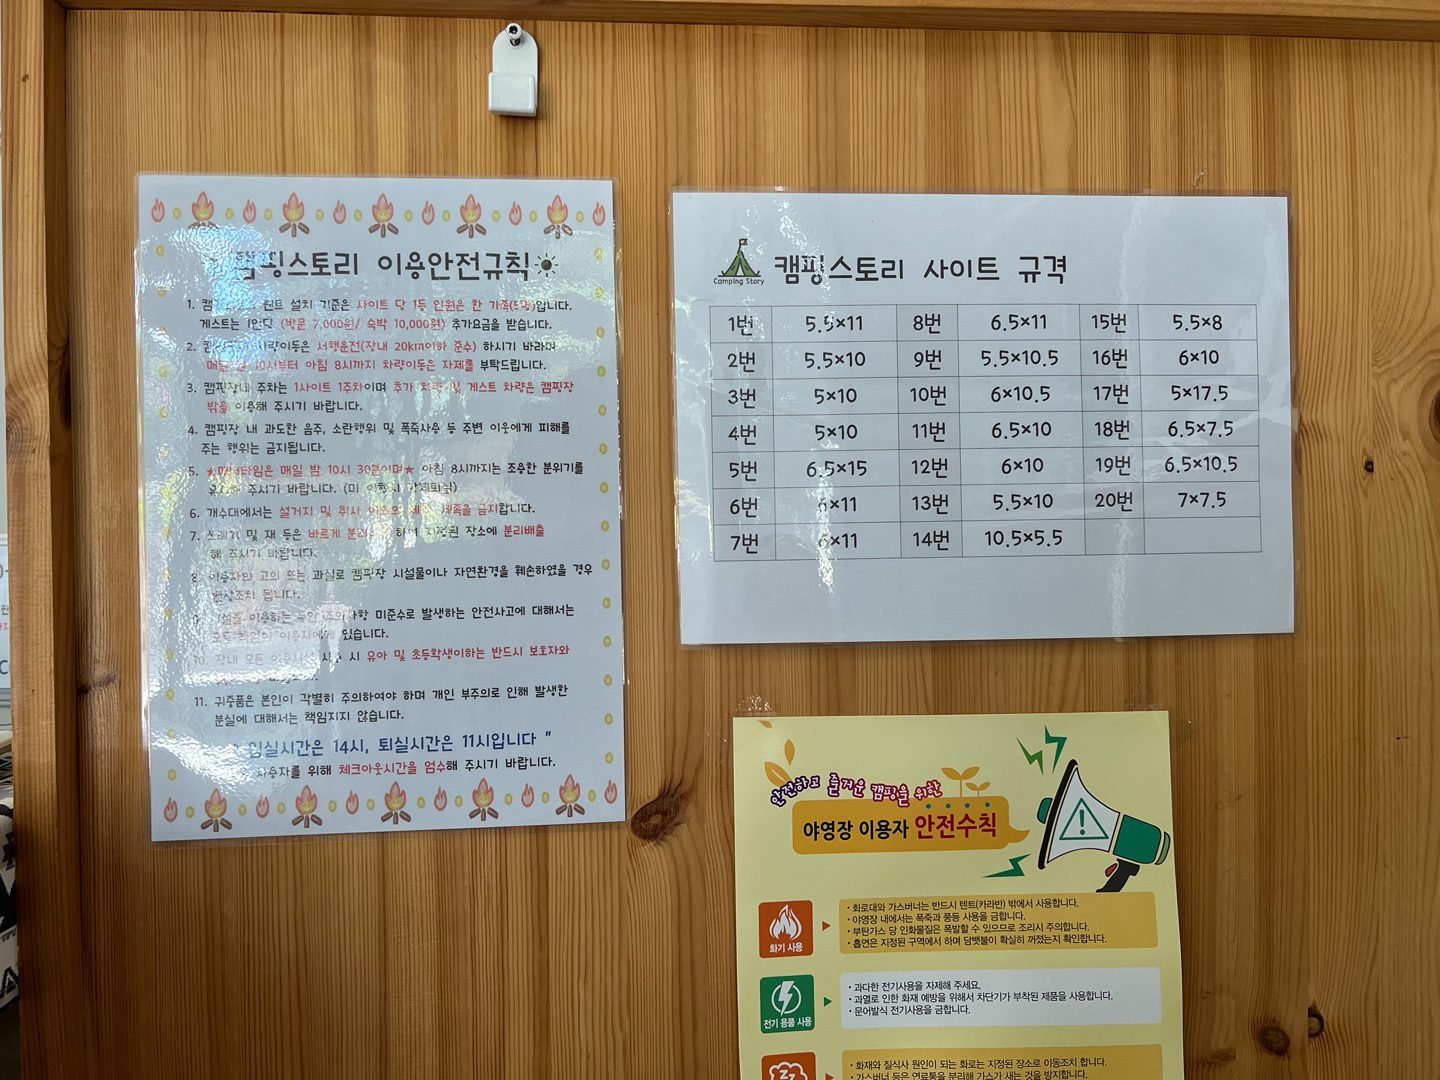 캠핑스토리 이용안전규칙
1. 텐트 설치 기준은 사이트 당 1동 인원은 한 가족(5명)입니다.
게스트는 1인당 (방문 7,000원/ 숙박 10,000원) 추가요금을 받습니다.
2. 차량이동은 서행운전(장내 20km이하 준수) 하시기 바라며
매일 밤 10시부터 아침 8시까지 차량이동은 자제를 부탁드립니다.
3. 캠핑장내 주차는 1사이트 1주차이며 추가 차량 및 게스트 차량은 캠핑장
밖을 이용해 주시기 바랍니다.
4. 캠핑장 내 과도한 음주, 소란행위 및 폭죽사용 등 주변 이웃에게 피해를
주는 행위는 금지됩니다.
5. ★매너타임은 매일 밤 10시 30분이며★ 아침 8시까지는 조용한 분위기를
유지해 주시기 바랍니다. (미 이행시 강제퇴실)
6. 개수대에서는 설거지 및 취사 이외의 세족을 금지합니다.
7. 쓰레기 및 재 등은 바르게 분리 하며 지정된 장소에 분리배출
해 주시기 바랍니다.
8. 이용자의 고의 또는 과실로 캠핑장 시설물이나 자연환경을 훼손하였을 경우
변상조치 됩니다.
9. 이용하는 동안 주의사항 미준수로 발생하는 안전사고에 대해서는
모든 책임이 이용자에게 있습니다.
10. 장내 모든 시 유아 및 초등학생이하는 반드시 보호자와
11. 귀중품은 본인이 각별히 주의하여야 하며 개인 부주의로 인해 발생한
분실에 대해서는 책임지지 않습니다.
입실시간은 14시, 퇴실시간은 11시입니다 "
사용자를 위해 체크아웃시간을 엄수해 주시기 바랍니다.
Camping Story
캠핑스토리 사이트 규격
1번 5.5×11 8번 6.5×11 15번 5.5×8
2번 5.5×10 9번 5.5×10.5 16번 6×10
3번 5×10 10번 6×10.5 17번 5×17.5
4번 5×10 11번 6.5×10 18번 6.5×7.5
5번 6.5×15 12번 6×10 19번 6.5×10.5
6번 6×11 13번 5.5×10 20번 7×7.5
7번 6×11 14번 10.5×5.5
안전하고 즐거운 캠핑을 위한
야영장 이용자 안전수칙
화기 사용
• 화로대와 가스버너는 반드시 텐트(카라반) 밖에서 사용합니다.
• 야영장 내에서는 폭죽과 풍등 사용을 금합니다.
• 부탄가스 당 인화물질은 폭발할 수 있으므로 조리시 주의합니다.
• 흡연은 지정된 구역에서 하며 담뱃불이 확실히 꺼졌는지 확인합니다.
전기 용품 사용
• 과다한 전기사용을 자제해 주세요.
• 과열로 인한 화재 예방을 위해서 차단기가 부착된 제품을 사용합니다.
• 문어발식 전기사용을 금합니다.
• 화재와 질식사 원인이 되는 화로는 지정된 장소로 이동조치 합니다.
• 가스버너 등은 연료통을 분리해 가스가 새는 것을 방지합니다.